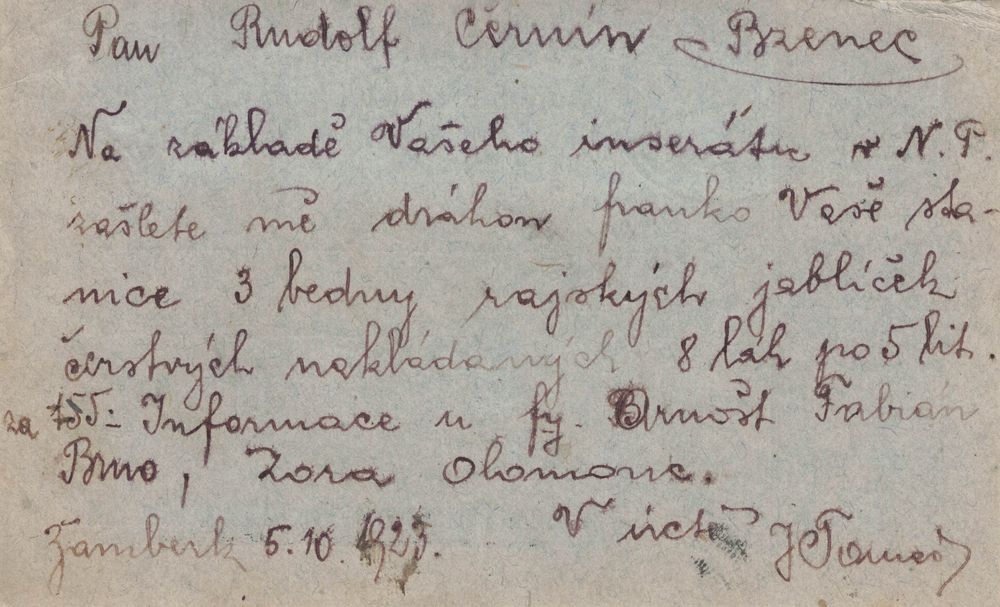 Pan Rudolf Černín Bzenec
Na základě Vašeho inserátu v N. P.
zašlete mě dráhou franko Vaše sta-
nice 3 bedny rajských jablíček
čerstvých nakládaných 8 láh po 5 lit.
za 155.- Informace u fy. Arnošt Fabián
Brno, Zora Olomouc.
Žamberk 5.10.1923. V úctě J Tomeš